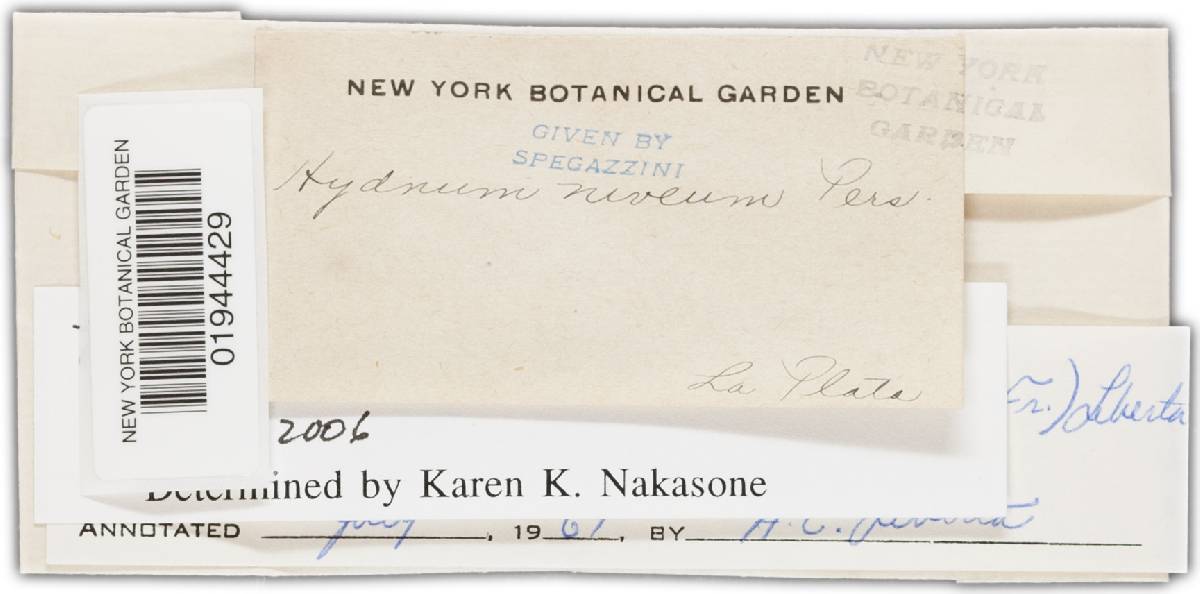 NEW YORK BOTANICAL GARDEN
NEW YORK
BOTANICAL
GARDEN
GIVEN BY
SPEGAZZINI
Hydnum niveum Pers.
La Plata
NEW YORK BOTANICAL GARDEN
01944429
Fr.) Liberta
2006
Determined by Karen K. Nakasone
ANNOTATED July, 1961, BY A.E. Liberta